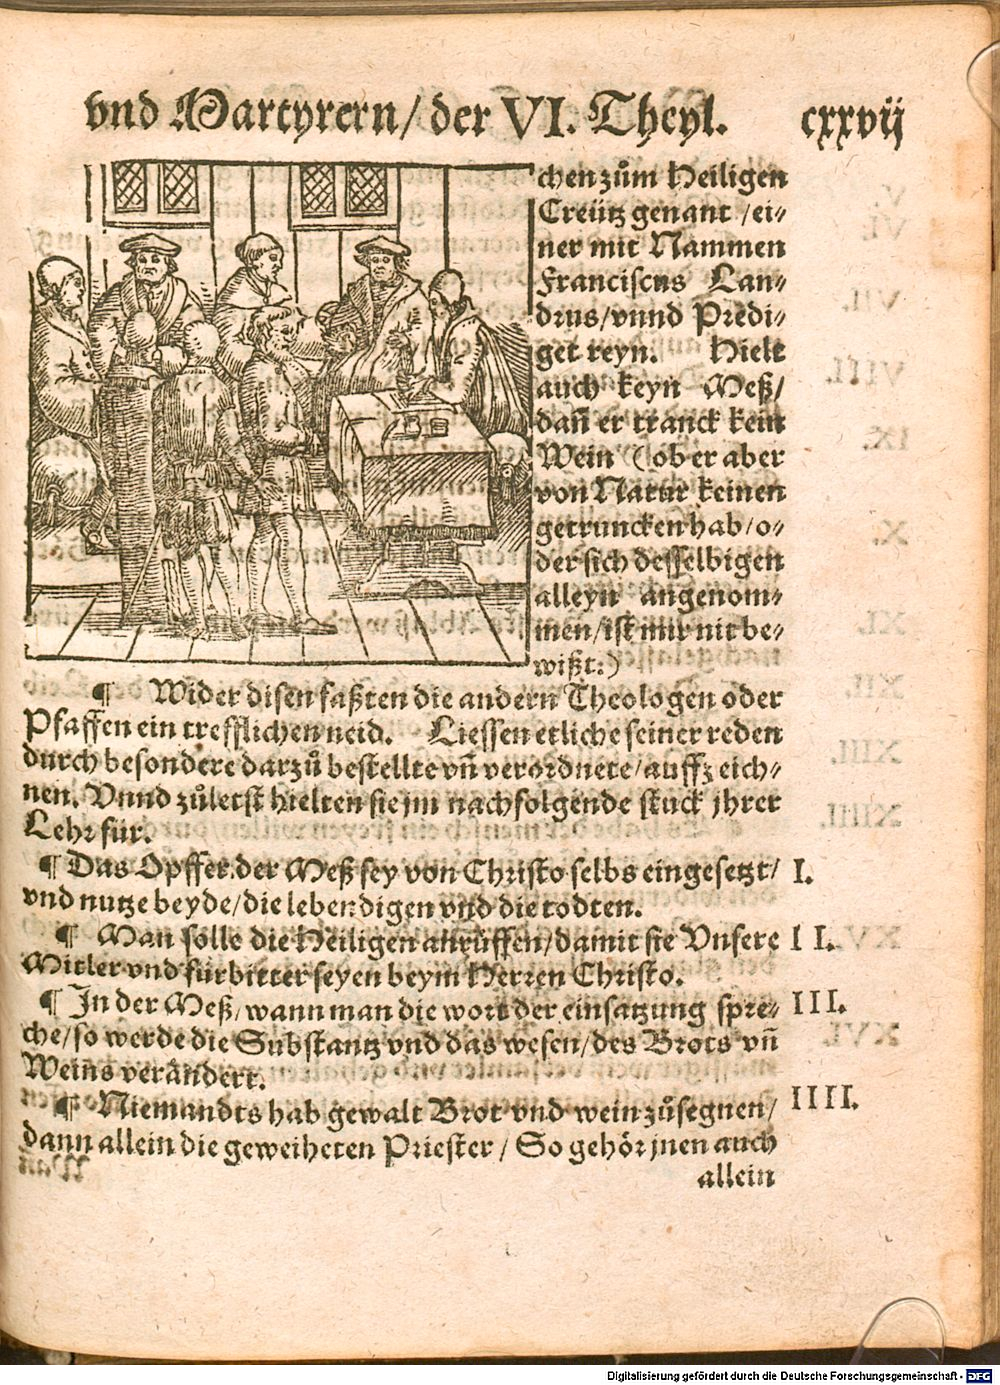 vnd Martyrern/ der VI. Theyl. cxxvij
chen zům Heiligen
Creütz genant /ei⸗
ner mit Nammen
Franciscus Lan⸗
drus/vnnd Predi⸗
get reyn. Hielt
auch keyn Meß/
dañ er tranck kein
Wein (ob er aber
von Natur keinen
getruncken hab/o⸗
der sich desselbigen
alleyn angenom⸗
men/ist mir nit be⸗
wißt:)
¶ Wider disen faßten die andern Theologen oder
Pfaffen ein trefflichen neid. Liessen etliche seiner reden
durch besondere darzů bestellte vñ verordnete/auffzeich⸗
nen. Vnnd zůletst hielten sie jm nachfolgende stuck jhrer
Lehr für.
¶ Das Opffer der Meß sey von Christo selbs eingesetzt/ I.
vnd nutze beyde/die lebendigen vnd die todten.
¶ Man solle die Heiligen anrüffen/damit sie Vnsere II.
Mitler vnd fürbitter seyen beym Herren Christo.
¶ In der Meß, wann man die wort der einsatzung spre⸗ III.
che/so werde die Substantz vnd das wesen/des Brots vñ
Weins verändert.
¶ Niemandts hab gewalt Brot vnd wein zůsegnen/ IIII.
dann allein die geweiheten Priester / So gehör jnen auch
allein
Digitalisierung gefördert durch die Deutsche Forschungsgemeinschaft - DFG